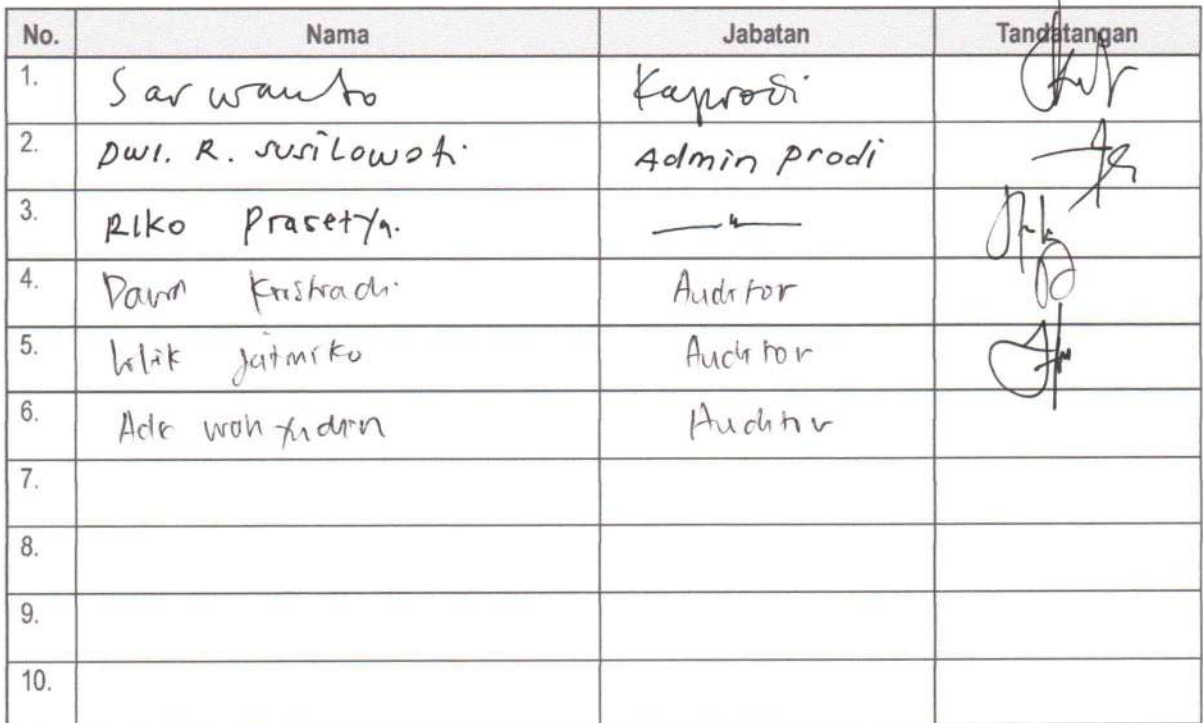 No. Nama Jabatan Tandatangan
1. Sarwanto Kaprodi
2. Dwi. R. Susilowati Admin prodi
3. Riko Prasetya. — " —
4. Kristiadi Auditor
5. Jatmiko Auditor
6. Ade wahyudin Auditor
7.
8.
9.
10.